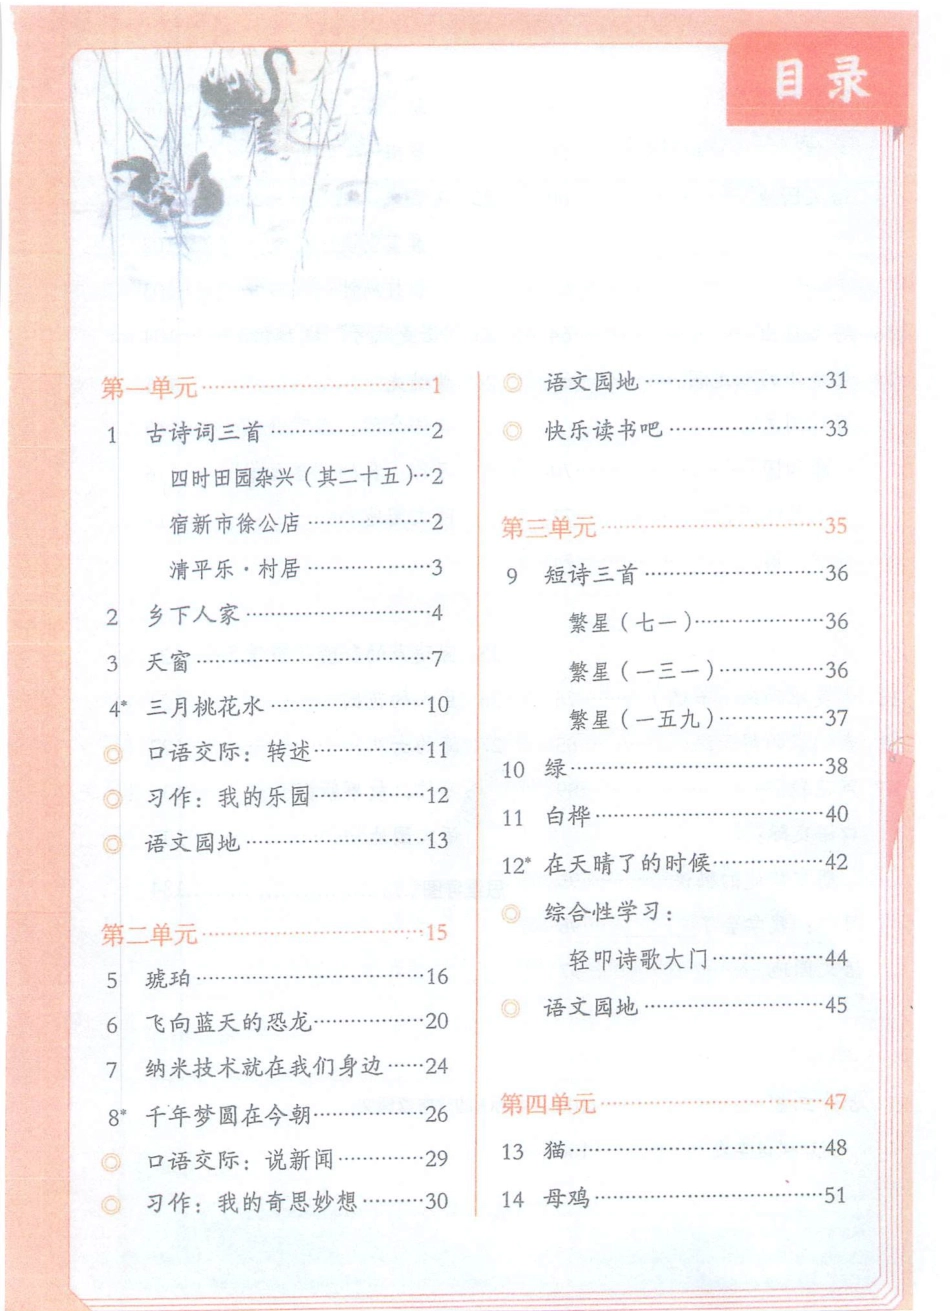 目录
第一单元……1
1 古诗词三首……2
四时田园杂兴（其二十五）…2
宿新市徐公店……2
清平乐·村居……3
2 乡下人家……4
3 天窗……7
4* 三月桃花水……10
◎ 口语交际：转述……11
◎ 习作：我的乐园……12
◎ 语文园地……13
第二单元……15
5 琥珀……16
6 飞向蓝天的恐龙……20
7 纳米技术就在我们身边……24
8* 千年梦圆在今朝……26
◎ 口语交际：说新闻……29
◎ 习作：我的奇思妙想……30
◎ 语文园地……31
◎ 快乐读书吧……33
第三单元……35
9 短诗三首……36
繁星（七一）……36
繁星（一三一）……36
繁星（一五九）……37
10 绿……38
11 白桦……40
12* 在天晴了的时候……42
◎ 综合性学习：
轻叩诗歌大门……44
◎ 语文园地……45
第四单元……47
13 猫……48
14 母鸡……51